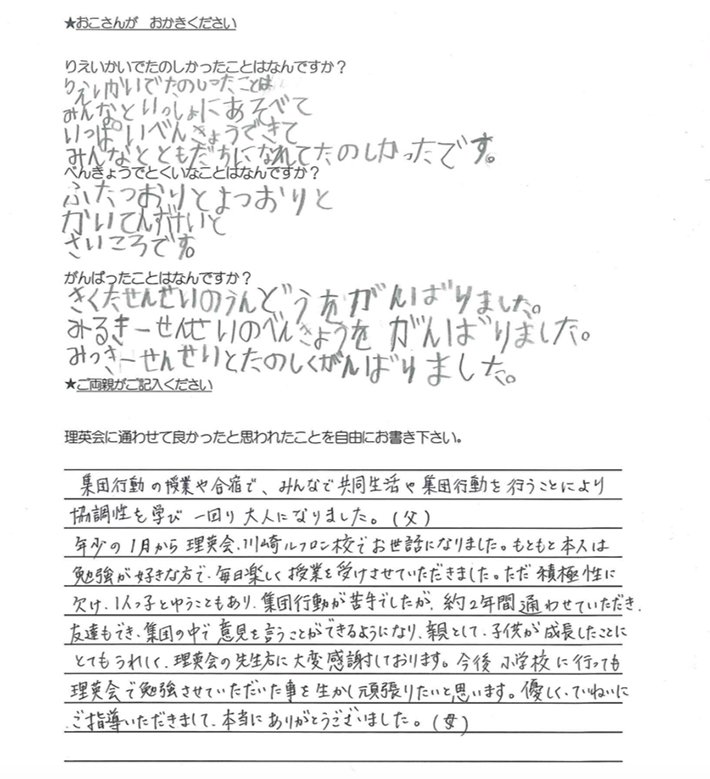 ★おこさんが　おかきください
りえいかいでたのしかったことはなんですか？
りえいかいでたのしかったことは
みんなといっしょにあそべて
いっぱいべんきょうできて
みんなとともだちになれてたのしかったです。
べんきょうでとくいなことはなんですか？
ふたつおりとよつおりと
かいてんずけいと
さいころです。
がんばったことはなんですか？
きくたせんせいのうんどうをがんばりました。
みるきーせんせいのべんきょうをがんばりました。
みっきーせんせいとたのしくがんばりました。
★ご両親がご記入ください
理英会に通わせて良かったと思われたことを自由にお書き下さい。
集団行動の授業や合宿で、みんなで共同生活や集団行動を行うことにより
協調性を学び一回り大人になりました。(父)
年少の1月から理英会、川崎ルフロン校でお世話になりました。もともと本人は
勉強が好きな方で、毎日楽しく授業を受けさせていただきました。ただ積極性に
欠け、1人っ子とゆうこともあり、集団行動が苦手でしたが、約2年間通わせていただき、
友達もでき、集団の中で意見を言うことができるようになり、親として、子供が成長したことに
とてもうれしく、理英会の先生方に大変感謝しております。今後小学校に行っても
理英会で勉強させていただいた事を生かし頑張りたいと思います。優しく、ていねいに
ご指導いただきまして、本当にありがとうございました。(母)